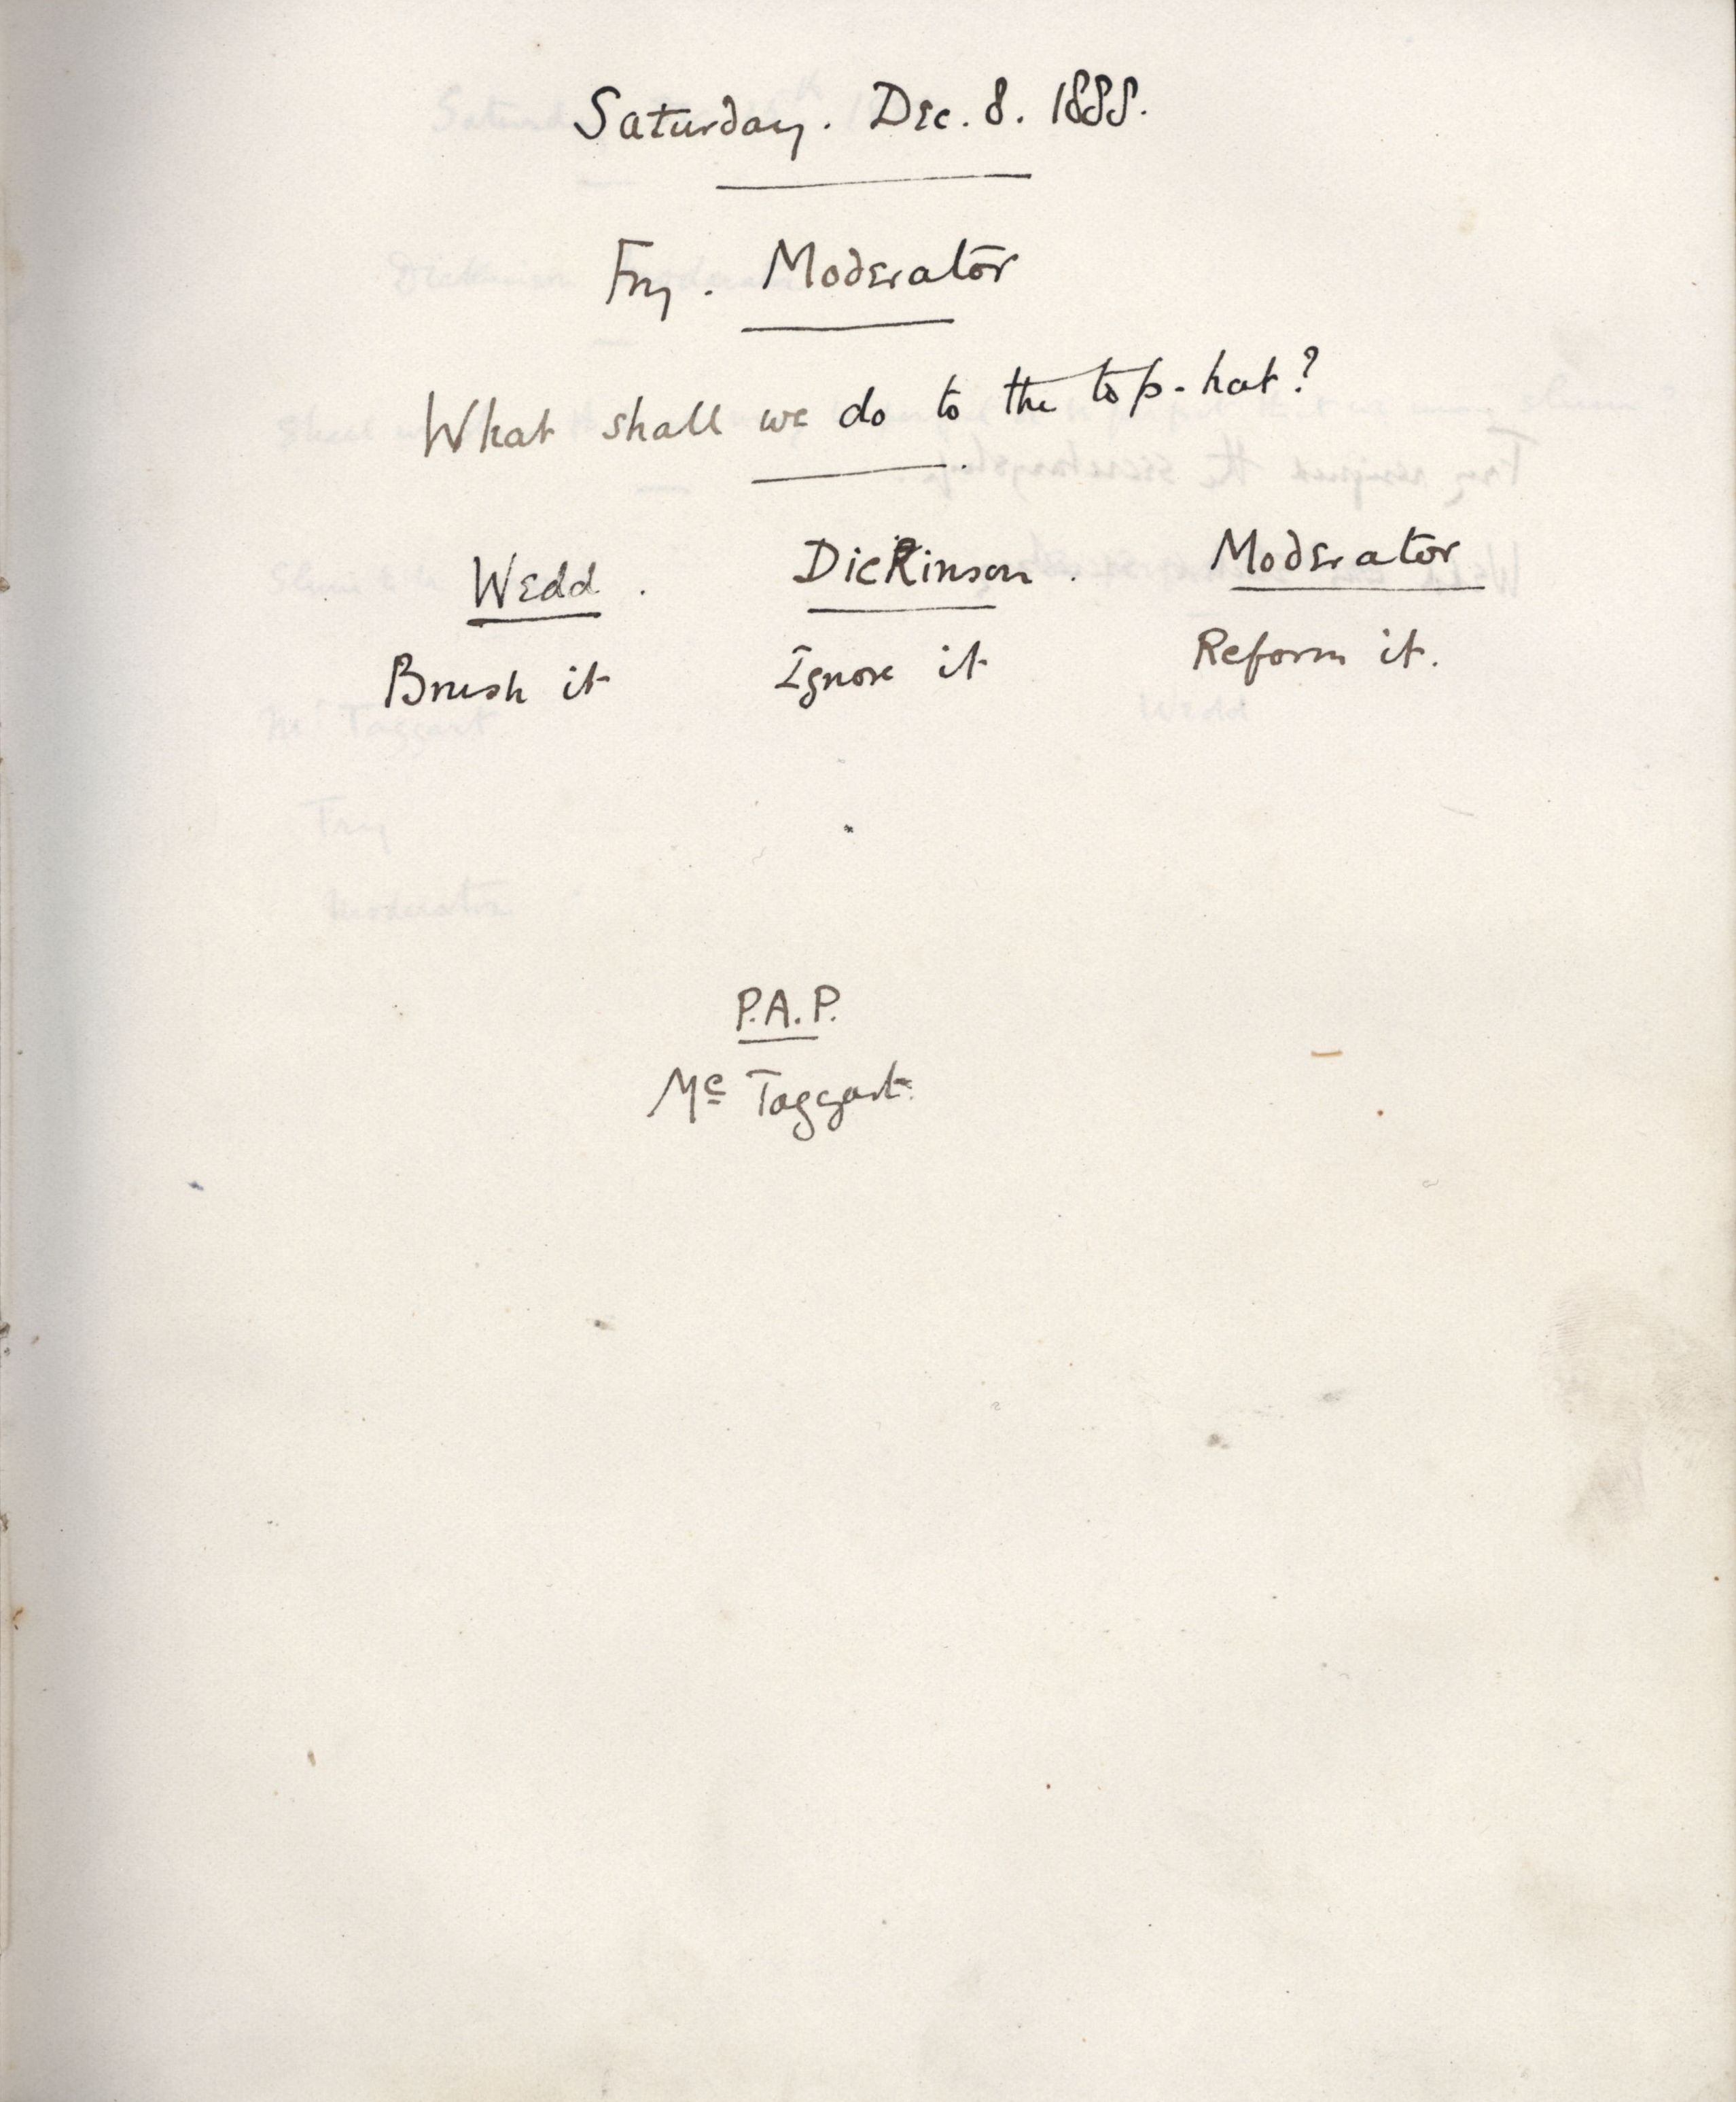 Saturday. Dec. 8. 1888.
Fry. Moderator
What shall we do to the top-hat?
Wedd. Dickinson. Moderator
Brush it Ignore it Reform it.
P.A.P.
Mc Taggart.